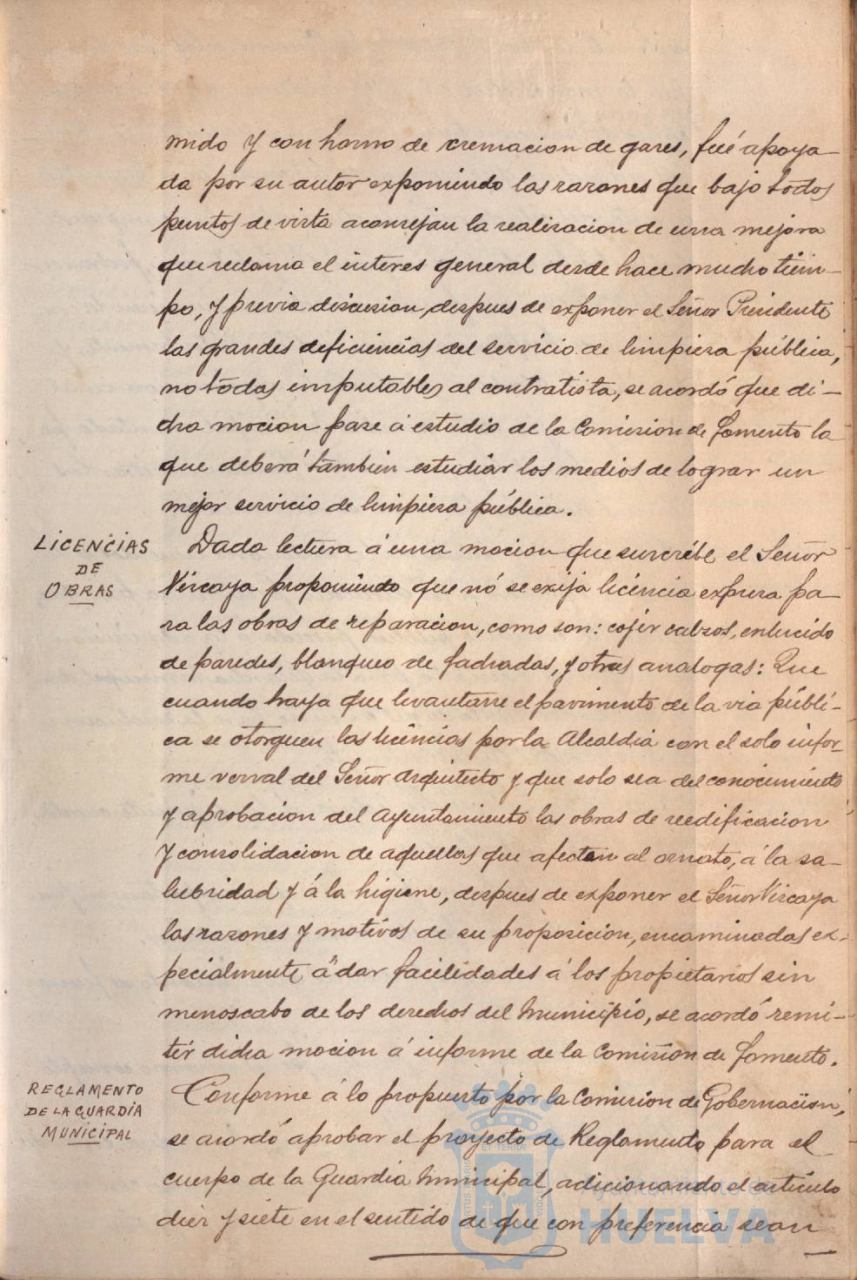 mido y con horno de cremacion de gases, fué apoya-
da por su autor exponiendo las razones que bajo todos
puntos de vista aconsejan la realizacion de una mejora
que reclama el interes general desde hace mucho tiem-
po, y previa discusion, despues de exponer el Señor Presidente
las grandes deficiencias del servicio de limpieza pública,
no todas imputables al contratista, se acordó que di-
cha mocion pase á estudio de la Comision de Fomento la
que deberá tambien estudiar los medios de lograr un
mejor servicio de limpieza pública.
LICENCIAS
DE
OBRAS
Dada lectura á una mocion que suscribe el Señor
Viscaya proponiendo que nó se exija licencia expresa pa-
ra las obras de reparacion, como son: cojer calzos, enlucido
de paredes, blanqueo de fachadas, y otras analogas: Que
cuando haya que levantarse el pavimento de la via públi-
ca se otorguen las licencias por la Alcaldia con el solo infor-
me verval del Señor Arquitecto y que solo sea del conocimiento
y aprobacion del Ayuntamiento las obras de reedificacion
y consolidacion de aquellas que afecten al ornato, á la sa-
lubridad y á la higiene, despues de exponer el Señor Viscaya
las razones y motivos de su proposicion, encaminadas ex-
pecialmente á dar facilidades á los propietarios sin
menoscabo de los derechos del Municipio, se acordó remi-
tir dicha mocion á informe de la Comision de Fomento.
REGLAMENTO
DE LA GUARDIA
MUNICIPAL
Conforme á lo propuesto por la Comision de Gobernacion,
se acordó aprobar el proyecto de Reglamento para el
cuerpo de la Guardia Municipal, adicionando el articulo
diez y siete en el sentido de que con preferencia sean
HUELVA